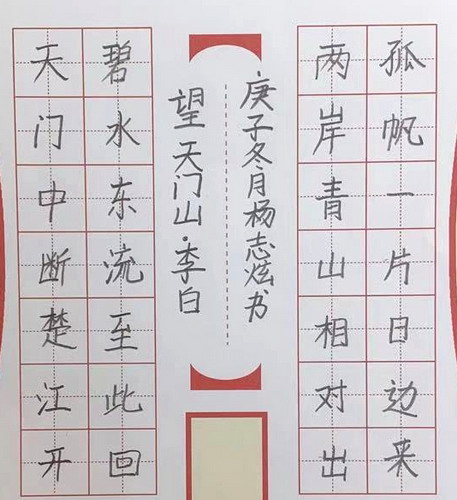 天门中断楚江开
碧水东流至此回
望天门山·李白
庚子冬月杨志炫书
两岸青山相对出
孤帆一片日边来